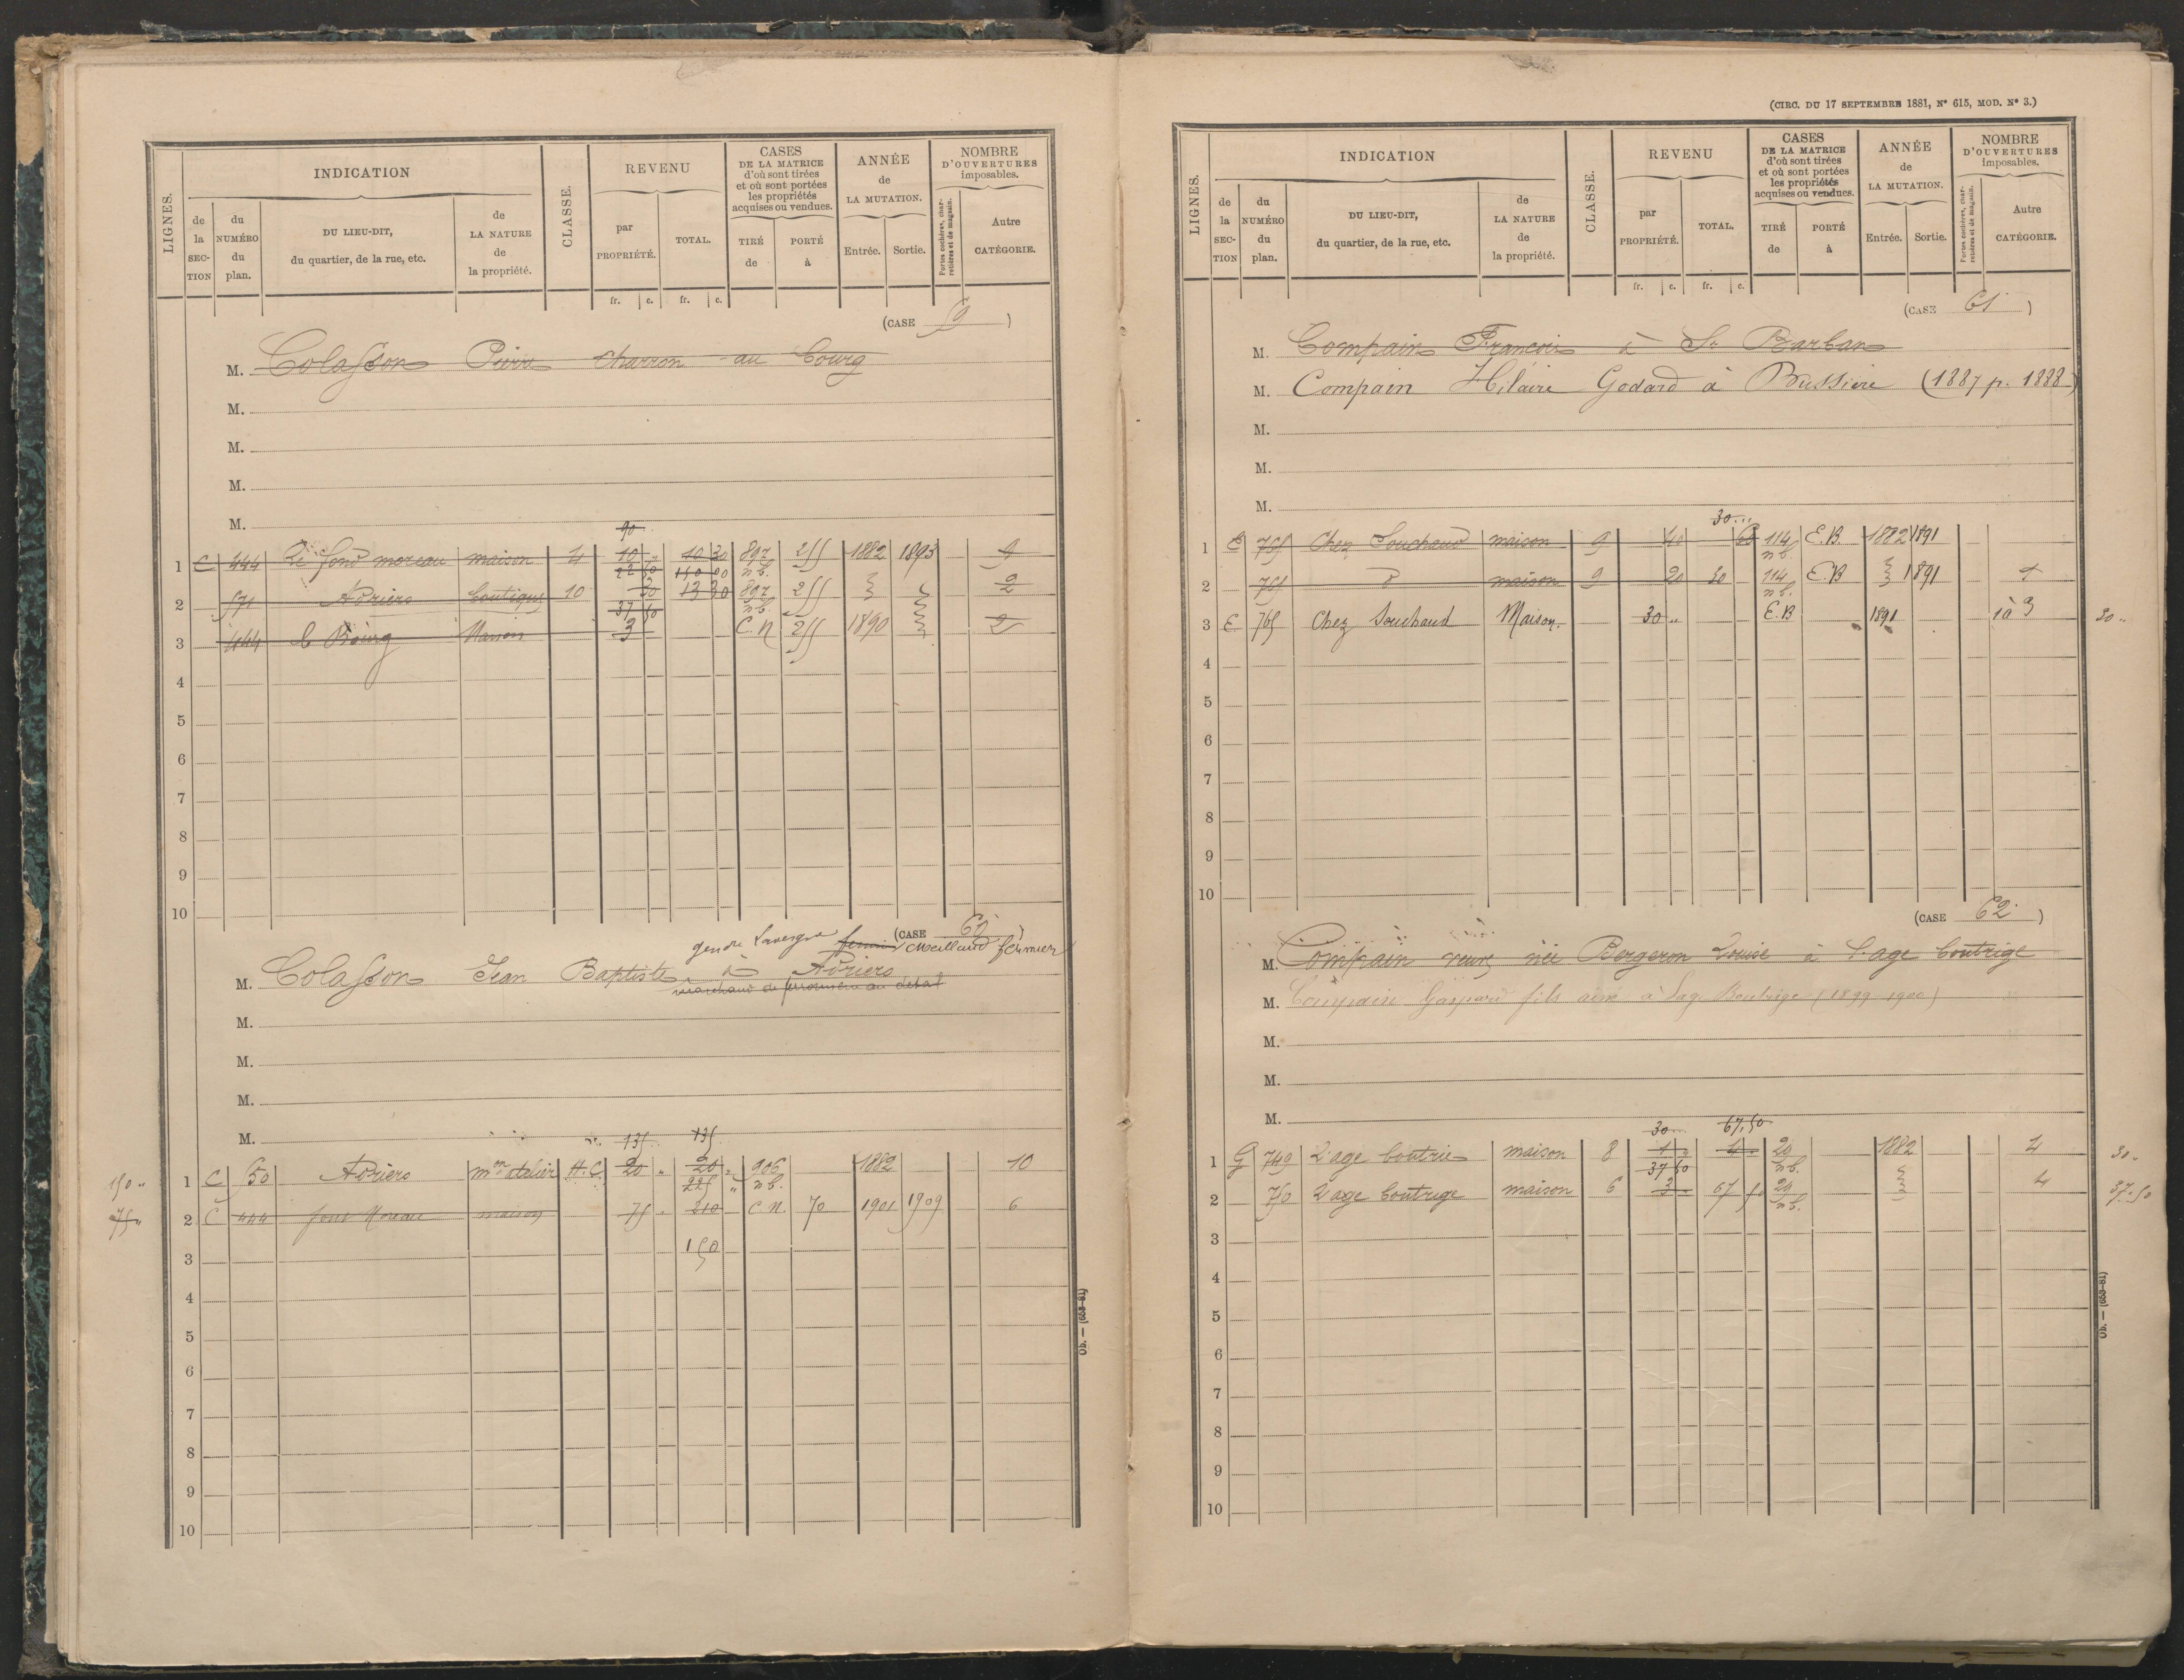 INDICATION
REVENU
CASES
DE LA MATRICE
d'où sont tirées
et où sont portées
les propriétés
acquises ou vendues.
ANNÉE
de
LA MUTATION.
NOMBRE
D'OUVERTURES
imposables.
LIGNES.
de la SECTION
du NUMÉRO du plan.
DU LIEU-DIT,
du quartier, de la rue, etc.
de LA NATURE de la propriété.
CLASSE.
par PROPRIÉTÉ.
TOTAL.
TIRÉ de
PORTÉ à
Entrée.
Sortie.
Portes cochères, charretières et de magasin.
Autre CATÉGORIE.
fr. c. fr. c.
(CASE 59)
M. Colasson Pierre charron au bourg
M.
M.
M.
M.
90
1 C 444 Le fond moreau maison 4 10 10 30 897 255 1882 1893
22 50 150 00 n.b.
2 571 Adriers boutique 10 30 13 30 897 255 2
37 50 n.b.
3 444 le Bourg Maison 3 C.N 255 1890 2
4
5
6
7
8
9
10
(CASE 60)
gendre Lavergne Meillaud fermier
M. Colasson Jean Baptiste à Adriers
M.
M.
M.
M.
135 135
150 " 1 C 50 Adriers mon atelier H.C. 20 " 20 " 906 1882 10
225 " n.b.
75 " 2 C 444 fond Moreau maison 75 " 210 C.N. 70 1901 1909 6
3 150
4
5
6
7
8
9
10
Ob. — (653-81)
(CIRC. DU 17 SEPTEMBRE 1881, N° 615, MOD. N° 3.)
INDICATION
REVENU
CASES
DE LA MATRICE
d'où sont tirées
et où sont portées
les propriétés
acquises ou vendues.
ANNÉE
de
LA MUTATION.
NOMBRE
D'OUVERTURES
imposables.
LIGNES.
de la SECTION
du NUMÉRO du plan.
DU LIEU-DIT,
du quartier, de la rue, etc.
de LA NATURE de la propriété.
CLASSE.
par PROPRIÉTÉ.
TOTAL.
TIRÉ de
PORTÉ à
Entrée.
Sortie.
Portes cochères, charretières et de magasin.
Autre CATÉGORIE.
fr. c. fr. c.
(CASE 61)
M. Compain François à St Barban
M. Compain Hilaire Godard à Bussière (1887 p. 1888)
M.
M.
M.
30
1 E 765 Chez Souchaud maison 9 40 60 114 E.B. 1882 1891
n.b.
2 765 d maison 9 20 30 114 E.B 1891 1
n.b.
3 E 765 Chez Souchaud Maison. 30 " E.B 1891 1 à 3 30 "
4
5
6
7
8
9
10
(CASE 62)
M. Compain veuve née Bergeron Louise à l'age boutrige
M. Compain Gaspard fils ainé à Lage Boutrige (1899-1900)
M.
M.
M.
30 67,50
1 G 749 L'age boutrie maison 8 1 4 29 1882 4 30 "
37 50 n.b.
2 750 L'age boutrige maison 6 3 67 50 29 4 37.50
n.b.
3
4
5
6
7
8
9
10
Ob. — (653-81)